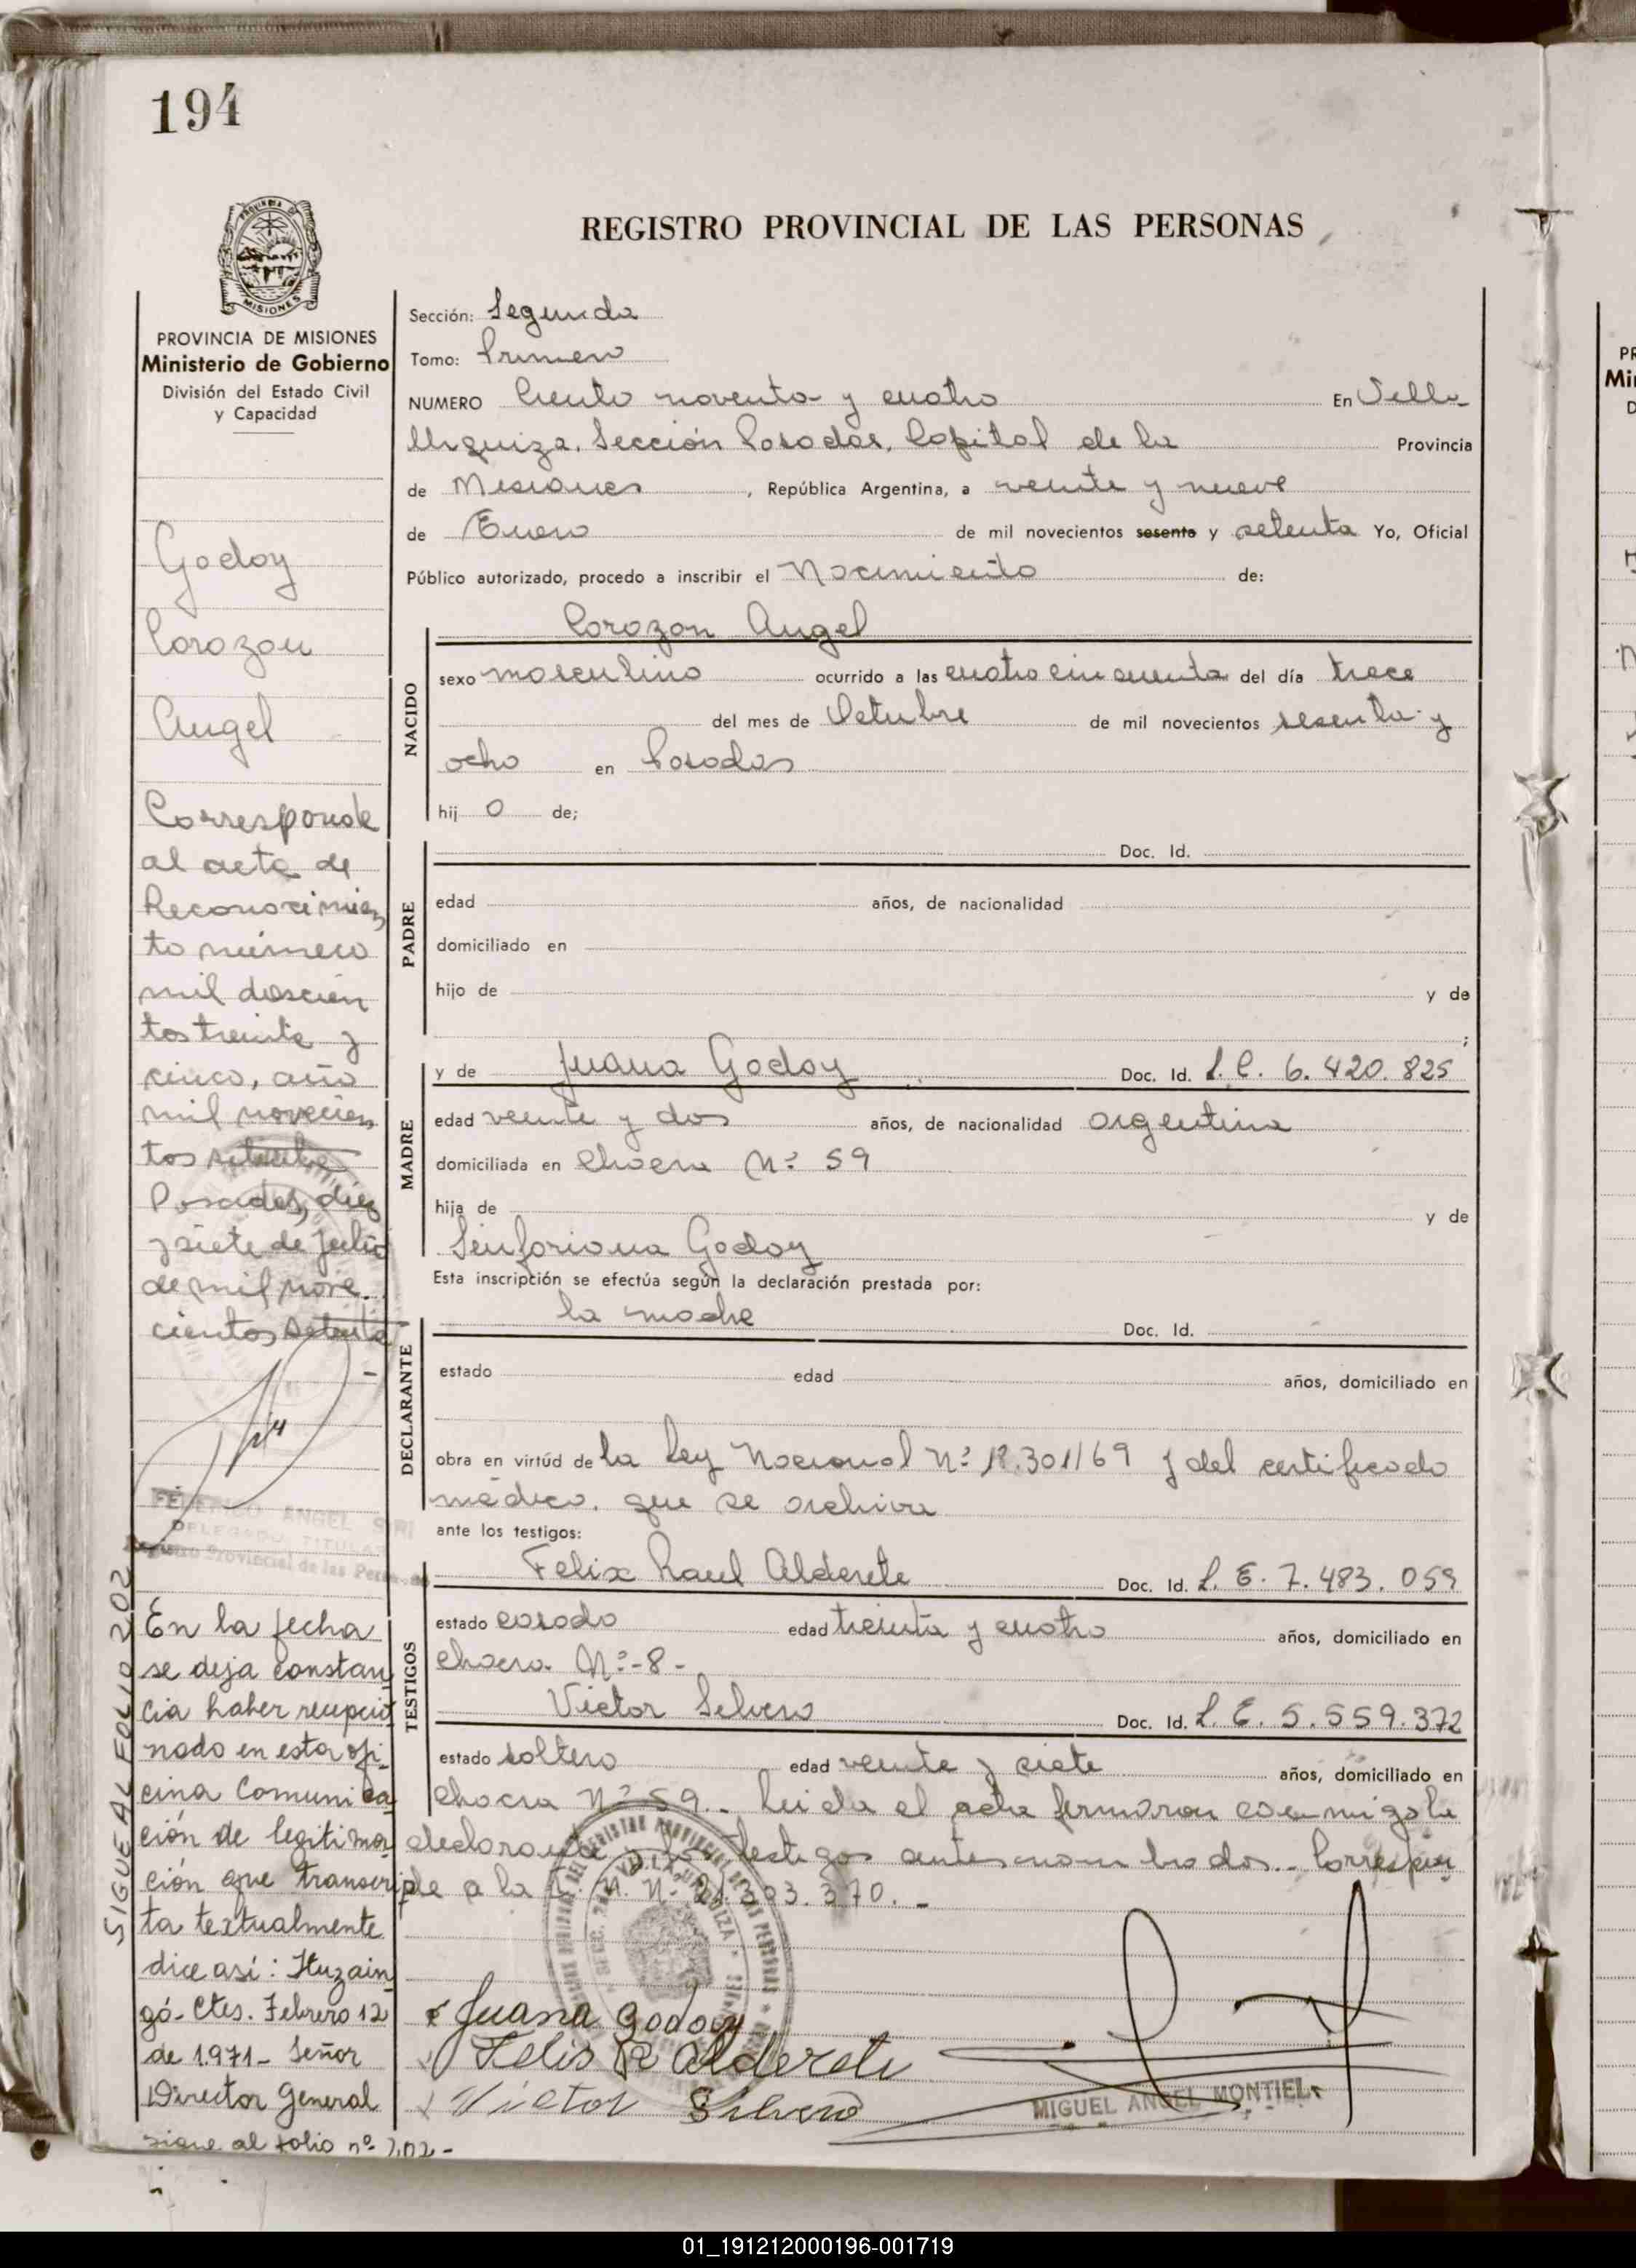 194
PROVINCIA DE MISIONES
Ministerio de Gobierno
División del Estado Civil
y Capacidad
Godoy
Corazon
Angel
Corresponde
al acta de
Reconocimien
to número
mil doscien
tos treinta y
cinco, año
mil novecien
tos setenta
Posadas, diez
y siete de Julio
de mil nove-
cientos setenta
FEDERICO ANGEL SIRI
DELEGADO TITULAR
Registro Provincial de las Personas
En la fecha
se deja constan
cia haber recepcio
nado en esta ofi-
cina Comunica
ción de legitima
ción que transcri
ta textualmente
dice así: Ituzain
gó- Ctes. Febrero 12
de 1.971- Señor
Director General
sigue al folio nº 202-
SIGUE AL FOLIO 202
REGISTRO PROVINCIAL DE LAS PERSONAS
Sección: Segunda
Tomo: Primero
NUMERO Ciento noventa y cuatro En Villa
Urquiza, Sección Posadas, Capital de la Provincia
de Misiones, República Argentina, a veinte y nueve
de Enero de mil novecientos sesenta y setenta Yo, Oficial
Público autorizado, procedo a inscribir el Nacimiento de:
NACIDO
Corazon Angel
sexo masculino ocurrido a las cuatro cincuenta del día trece
del mes de Octubre de mil novecientos sesenta y
ocho en Posadas
hij o de;
PADRE
Doc. Id.
edad años, de nacionalidad
domiciliado en
hijo de y de
;
MADRE
y de Juana Godoy Doc. Id. L. C. 6.420.825
edad veinte y dos años, de nacionalidad argentina
domiciliada en Chacra Nº 59
hija de y de
Sinforiana Godoy
Esta inscripción se efectúa según la declaración prestada por:
DECLARANTE
la madre Doc. Id.
estado edad años, domiciliado en
obra en virtúd de la Ley Nacional Nº 18.301/69 y del certificado
médico, que se archiva
ante los testigos:
TESTIGOS
Felix Raul Alderete Doc. Id. L. E. 7.483.059
estado casado edad treinta y cuatro años, domiciliado en
Chacra Nº -8-
Victor Silvero Doc. Id. L. E. 5.559.372
estado soltero edad veinte y siete años, domiciliado en
Chacra Nº 59.- Leida el acta firmaron conmigo la
declarante y los testigos antes nombrados.- Correspon
de a la 303.370.-
Juana Godoy
Felis R Alderete
Victor Silvero
MIGUEL ANGEL MONTIEL
01_191212000196-001719